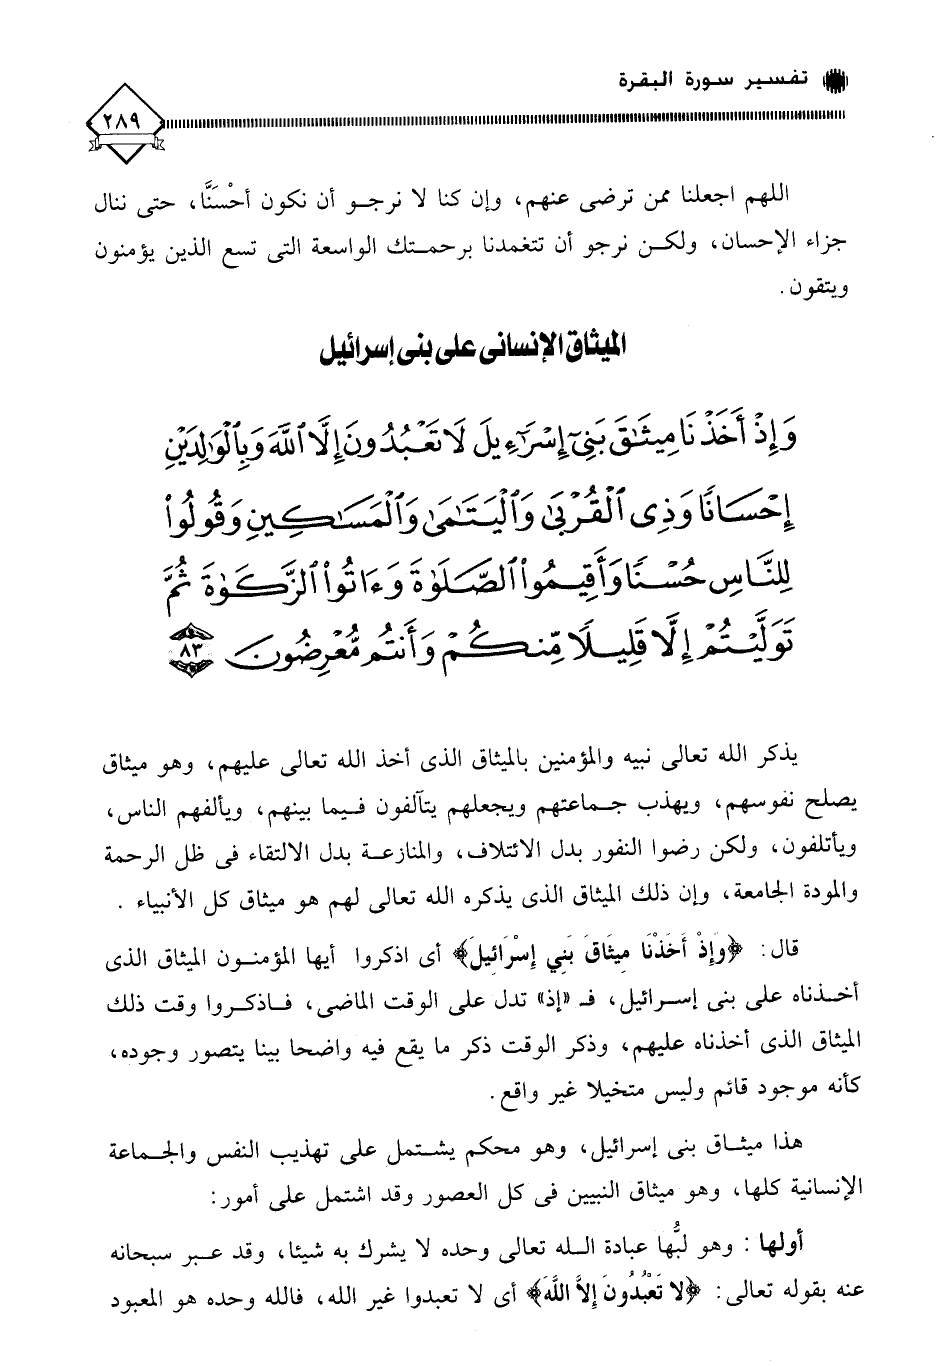 تفسير سورة البقرة
٢٨٩
اللهم اجعلنا ممن ترضى عنهم، وإن كنا لا نرجو أن نكون أحْسَنَّا، حتى ننال
جزاء الإحسان، ولكن نرجو أن تتغمدنا برحمتك الواسعة التى تسع الذين يؤمنون
ويتقون.
الميثاق الإنسانى على بنى إسرائيل
وَإِذْ أَخَذْنَا مِيثَٰقَ بَنِىٓ إِسْرَٰٓءِيلَ لَا تَعْبُدُونَ إِلَّا ٱللَّهَ وَبِٱلْوَٰلِدَيْنِ
إِحْسَانًا وَذِى ٱلْقُرْبَىٰ وَٱلْيَتَٰمَىٰ وَٱلْمَسَٰكِينِ وَقُولُوا۟
لِلنَّاسِ حُسْنًا وَأَقِيمُوا۟ ٱلصَّلَوٰةَ وَءَاتُوا۟ ٱلزَّكَوٰةَ ثُمَّ
تَوَلَّيْتُمْ إِلَّا قَلِيلًا مِّنكُمْ وَأَنتُم مُّعْرِضُونَ ٨٣
يذكر الله تعالى نبيه والمؤمنين بالميثاق الذى أخذ الله تعالى عليهم، وهو ميثاق
يصلح نفوسهم، ويهذب جماعتهم ويجعلهم يتآلفون فيما بينهم، ويألفهم الناس،
ويأتلفون، ولكن رضوا النفور بدل الائتلاف، والمنازعة بدل الالتقاء فى ظل الرحمة
والمودة الجامعة، وإن ذلك الميثاق الذى يذكره الله تعالى لهم هو ميثاق كل الأنبياء .
قال: ﴿وَإِذْ أَخَذْنَا مِيثَاقَ بَنِي إِسْرَائِيلَ﴾ أى اذكروا أيها المؤمنون الميثاق الذى
أخذناه على بنى إسرائيل، فـ «إذ» تدل على الوقت الماضى، فاذكروا وقت ذلك
الميثاق الذى أخذناه عليهم، وذكر الوقت ذكر ما يقع فيه واضحا بينا يتصور وجوده،
كأنه موجود قائم وليس متخيلا غير واقع.
هذا ميثاق بنى إسرائيل، وهو محكم يشتمل على تهذيب النفس والجماعة
الإنسانية كلها، وهو ميثاق النبيين فى كل العصور وقد اشتمل على أمور:
أولها : وهو لبُّها عبادة الله تعالى وحده لا يشرك به شيئا، وقد عبر سبحانه
عنه بقوله تعالى: ﴿لا تَعْبُدُونَ إِلاَّ اللَّهَ﴾ أى لا تعبدوا غير الله، فالله وحده هو المعبود